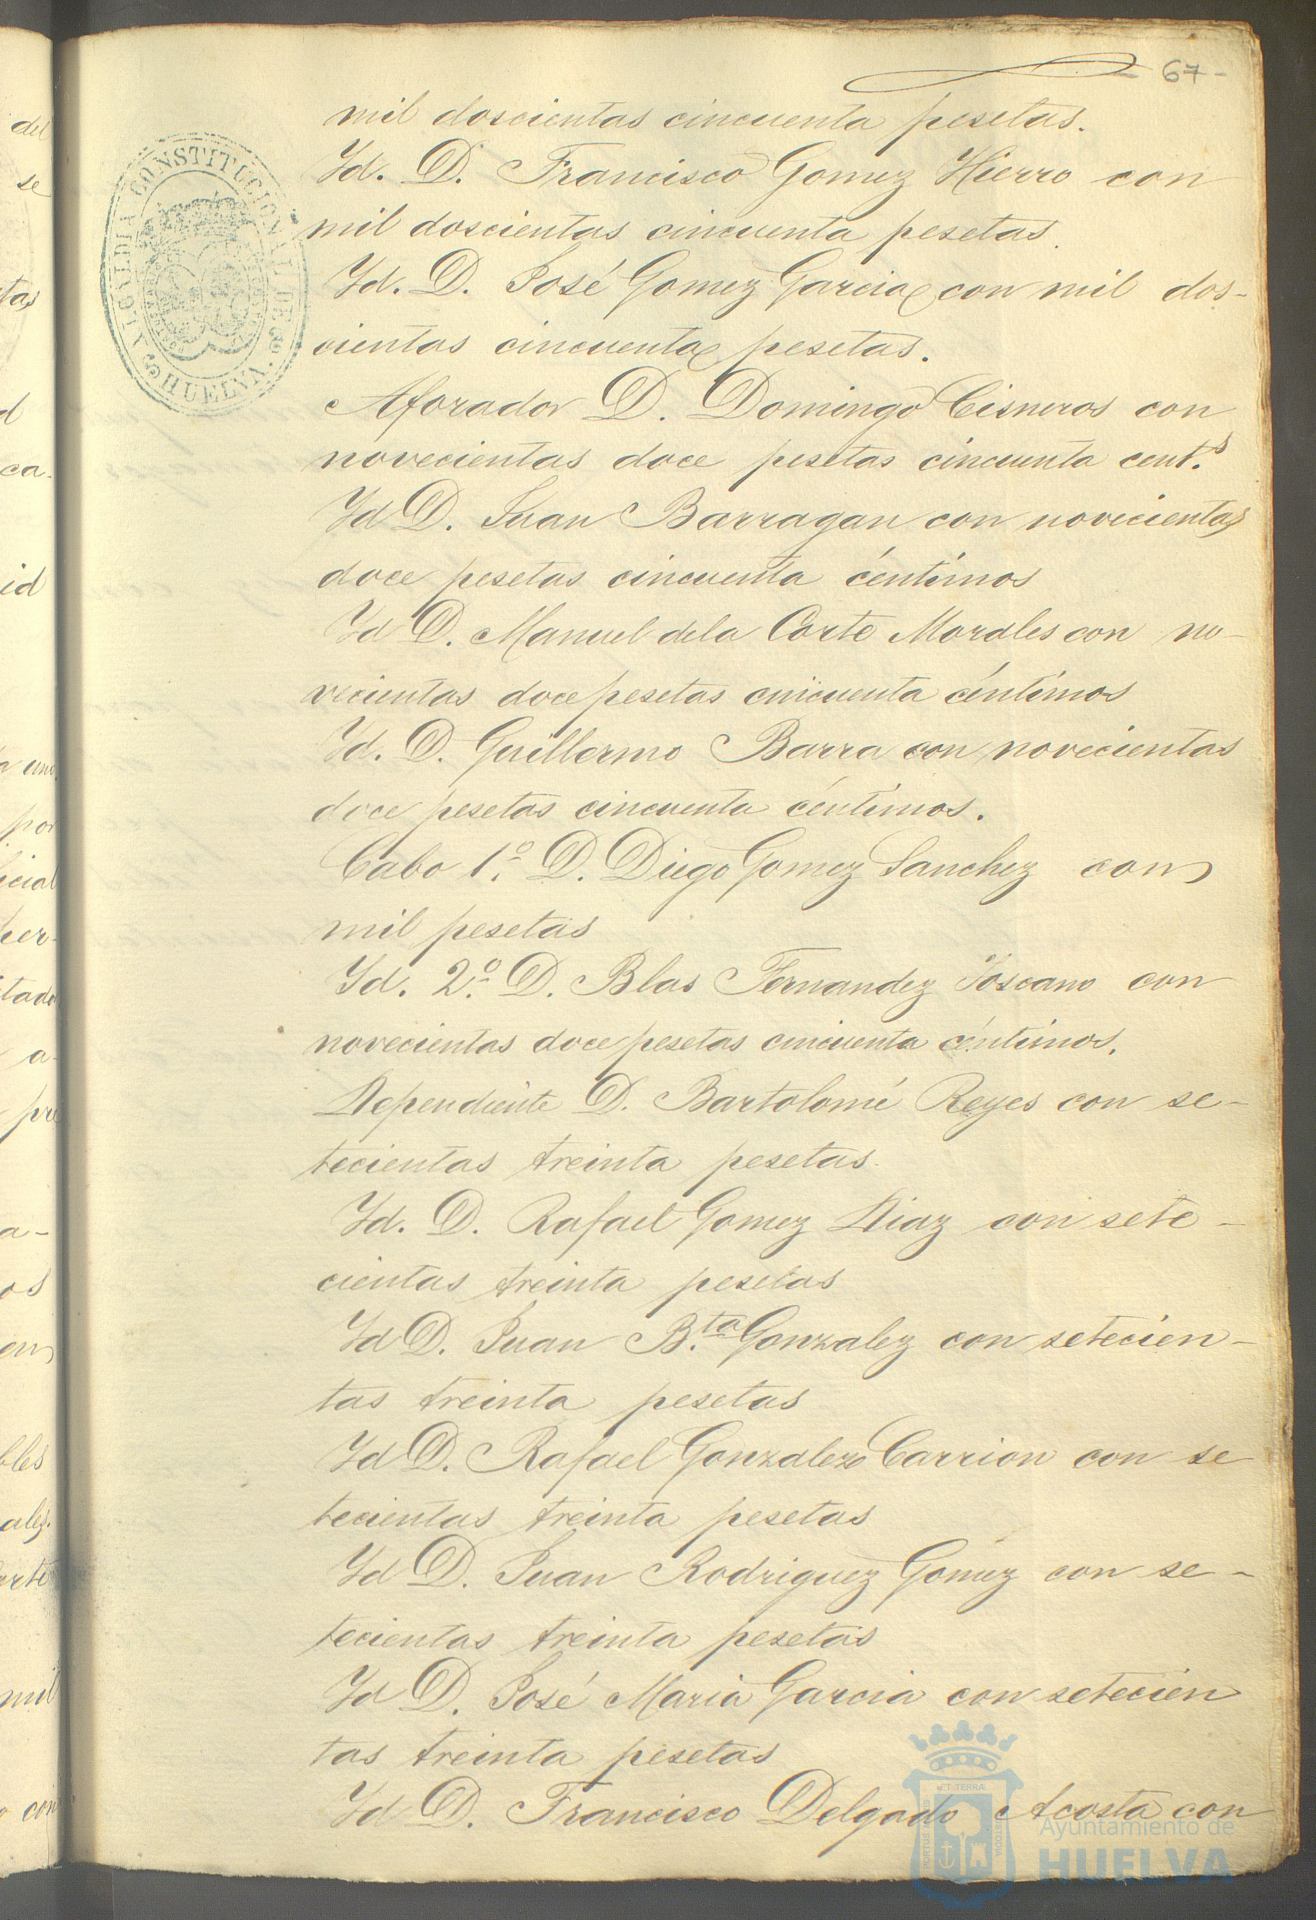 - 67 -
mil doscientas cincuenta pesetas.
Yd. D. Francisco Gomez Hierro con
mil doscientas cincuenta pesetas.
Yd. D. José Gomez Garcia con mil dos-
cientas cincuenta pesetas.
Aforador D. Domingo Cisneros con
novecientas doce pesetas cincuenta cent.s
Yd D. Juan Barragan con novecientas
doce pesetas cincuenta céntimos
Yd D. Manuel dela Corte Morales con no-
vecientas doce pesetas cincuenta céntimos
Yd. D. Guillermo Barra con novecientas
doce pesetas cincuenta céntimos.
Cabo 1.º D. Diego Gomez Sanchez con
mil pesetas
Yd. 2.º D. Blas Fernandez Toscano con
novecientas doce pesetas cincuenta céntimos.
Dependiente D. Bartolomé Reyes con se-
tecientas treinta pesetas.
Yd. D. Rafael Gomez Diaz con sete-
cientas treinta pesetas
Yd D. Juan B.ta Gonzalez con setecien-
tas treinta pesetas
Yd D. Rafael Gonzalez Carrion con se
tecientas treinta pesetas
Yd D. Juan Rodriguez Gomez con se-
tecientas treinta pesetas
Yd D. José Maria Garcia con setecien
tas treinta pesetas
Yd D. Francisco Delgado Acosta con
ALCALDIA CONSTITUCIONAL DE HUELVA.
del
se
tas
ca.
id
uno.
por
icial
per-
tado
a-
pri
a-
os
en
bles
ales.
orte
mil
con
Ayuntamiento de
HUELVA